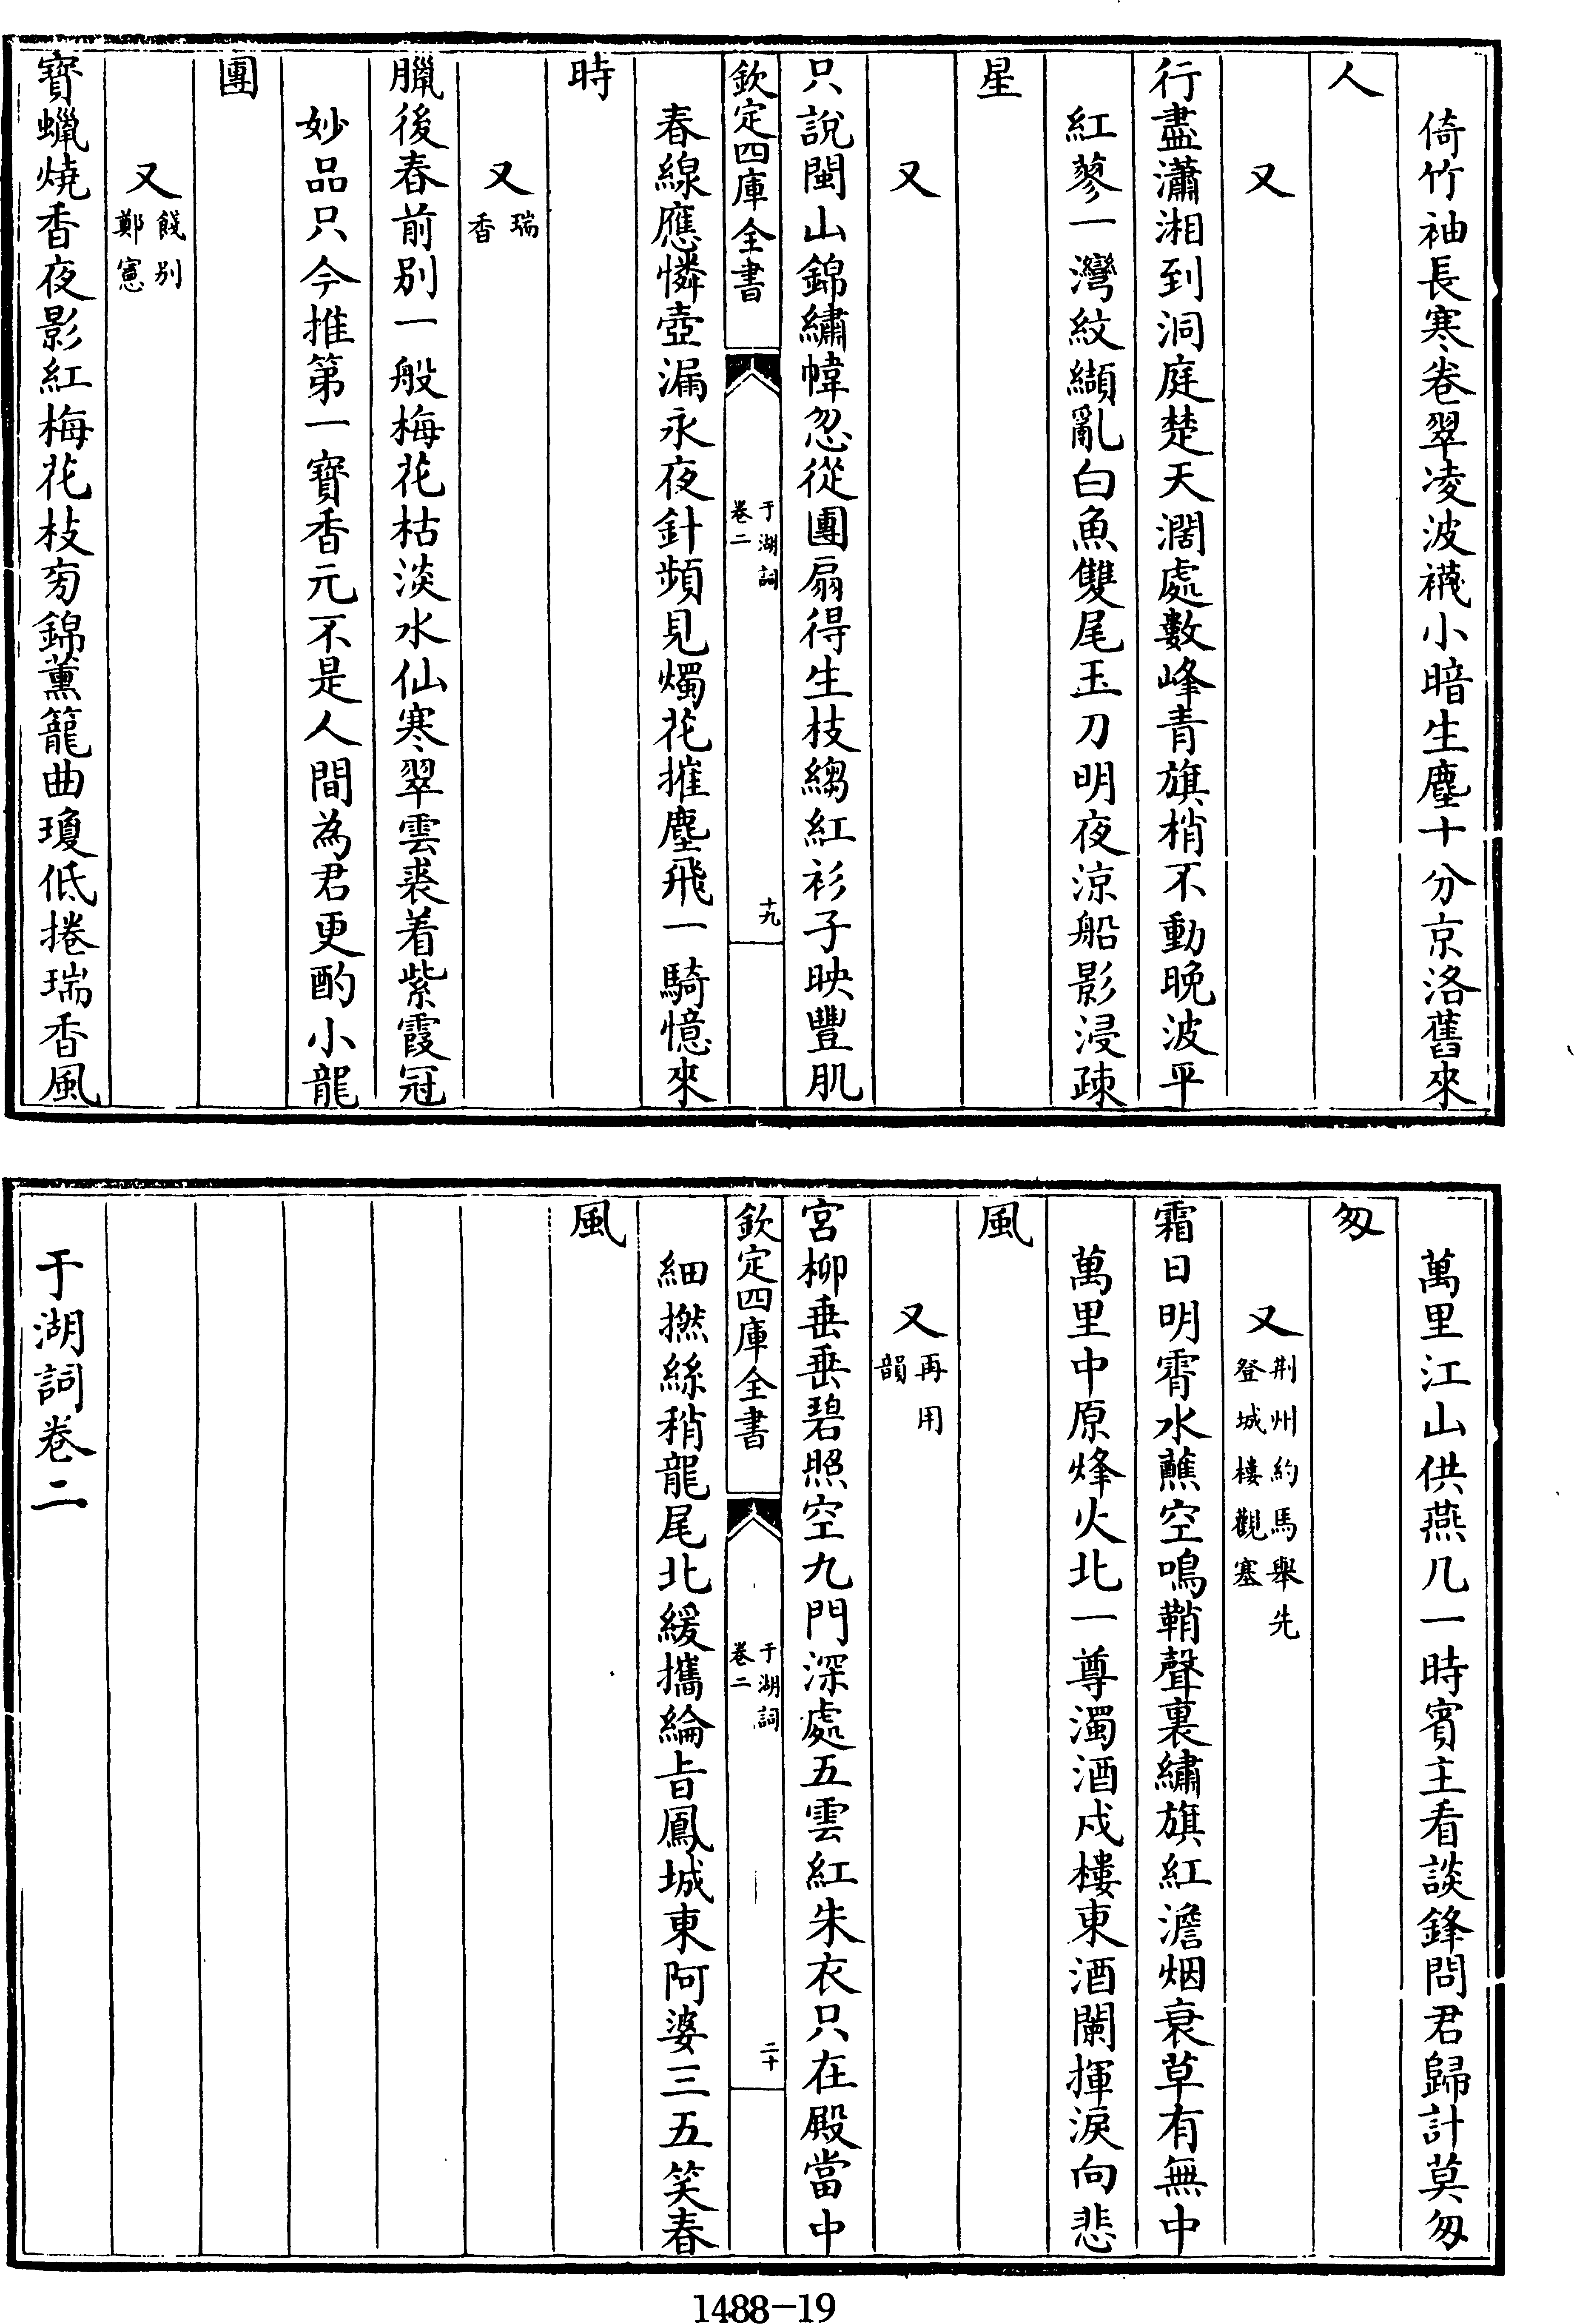 倚竹袖長寒卷翠凌波襪小暗生塵十分京洛舊來
人
又
行盡瀟湘到洞庭楚天濶處數峰青旗梢不動晚波平
紅蓼一灣紋纈亂白魚雙尾玉刀明夜涼船影浸疎
星
又
只說閩山錦繡幃忽從團扇得生枝縐紅衫子映豐肌
欽定四庫全書
于湖詞
卷二
十九
春線應憐壺漏永夜針頻見燭花摧塵飛一騎憶來
時
又瑞
香
臘後春前别一般梅花枯淡水仙寒翠雲裘着紫霞冠
妙品只今推第一寶香元不是人間為君更酌小龍
團
又餞别
鄭憲
寶蠟燒香夜影紅梅花枝旁錦薰籠曲瓊低捲瑞香風
萬里江山供燕几一時賓主看談鋒問君歸計莫匆
匆
又荆州約馬舉先
登城樓觀塞
霜日明霄水蘸空鳴鞘聲裏繡旗紅澹烟衰草有無中
萬里中原烽火北一尊濁酒戍樓東酒闌揮淚向悲
風
又再用
韻
宮柳垂垂碧照空九門深處五雲紅朱衣只在殿當中
欽定四庫全書
于湖詞
卷二
二十
細撚絲稍龍尾北緩攜綸旨鳳城東阿婆三五笑春
風
于湖詞卷二
1488-19